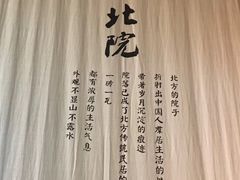 北院
北方的院子
折射出中国人群居生活的
带着岁月沉淀的痕迹
院落已成了北方传统民居的
一砖一瓦
都有浓厚的生活气息
外观不显山不露水